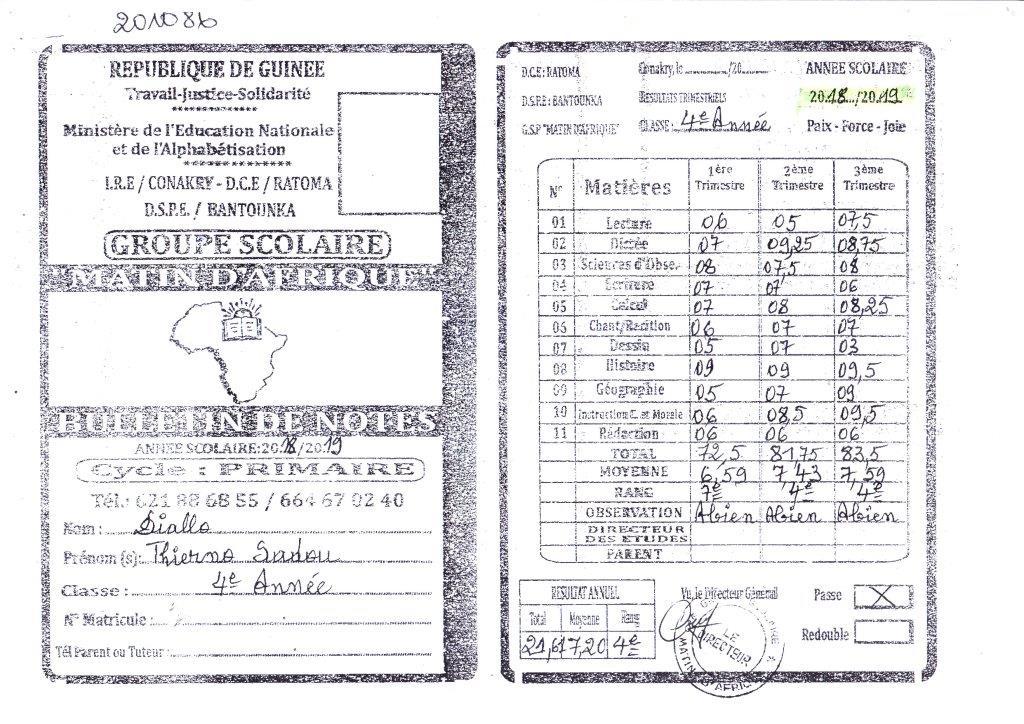 201086
REPUBLIQUE DE GUINEE
Travail-Justice-Solidarité
************
Ministère de l'Education Nationale
et de l'Alphabétisation
**************
I.R.E / CONAKRY - D.C.E / RATOMA
D.S.P.E. / BANTOUNKA
GROUPE SCOLAIRE
"MATIN D'AFRIQUE"
BULLETIN DE NOTES
ANNEE SCOLAIRE:2018/2019
Cycle : PRIMAIRE
Tél.: 621 88 68 55 / 664 67 02 40
Nom : Diallo
Prénom (s): Thierno Sadou
Classe : 4e Année
N° Matricule :
Tél Parent ou Tuteur :
D.C.E : RATOMA Conakry, le ............/20......... ANNEE SCOLAIRE
D.S.P.E : BANTOUNKA RESULTATS TRIMESTRIELS 2018.../2019
G.S.P "MATIN D'AFRIQUE" CLASSE : 4e Année Paix - Force - Joie
N° Matières 1ère Trimestre 2ème Trimestre 3ème Trimestre
01 Lecture 06 05 07,5
02 Dictée 07 09,25 08,75
03 Sciences d'Obse. 08 07,5 08
04 Ecriture 07 07 06
05 Calcul 07 08 08,25
06 Chant/Récition 06 07 07
07 Dessin 05 07 03
08 Histoire 09 09 09,5
09 Géographie 05 07 09
10 Instruction C. et Morale 06 08,5 09,5
11 Rédaction 06 06 06
TOTAL 72,5 81,75 83,5
MOYENNE 6,59 7,43 7,59
RANG 7e 4e 4e
OBSERVATION Abien Abien Abien
DIRECTEUR DES ETUDES
PARENT
RESULTAT ANNUEL
Total Moyenne Rang
21,61 7,20 4e
Vu, le Directeur Général
LE DIRECTEUR
Passe X
Redouble